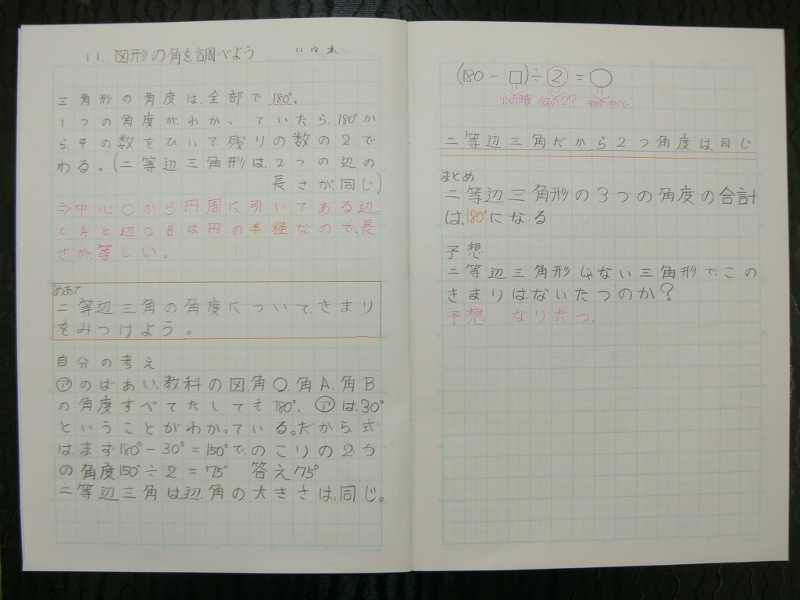 11. 図形の角を調べよう
三角形の角度は、全部で180°。
1つの角度がわかっていたら、180°か
ら、その数をひいて残りの数の2で
わる。(二等辺三角形は、2つの辺の
長さが同じ)
⇒中心Oから円周に引いてある辺
OAと辺OBは円の半径なので、長
さが、等しい。
めあて
二等辺三角の角度について、きまり
をみつけよう。
自分の考え
㋐のばあい、教科の図、角O、角A、角B
の角度すべてたしても180°、㋐は、30°
ということがわかっている。だから、式
はまず180°-30°=150°で、のこりの2つ
の角度、150°÷2=75° 答え75°
二等辺三角は、辺、角の大きさは、同じ。
(180-□)÷②=○
何の2?
二等辺三角だから2つ角度は、同じ
まとめ
二等辺三角形の3つの角度の合計
は、180°になる
予想
二等辺三角形じゃない三角形で、この
きまりは、ないたつのか?
予想 なりたつ。